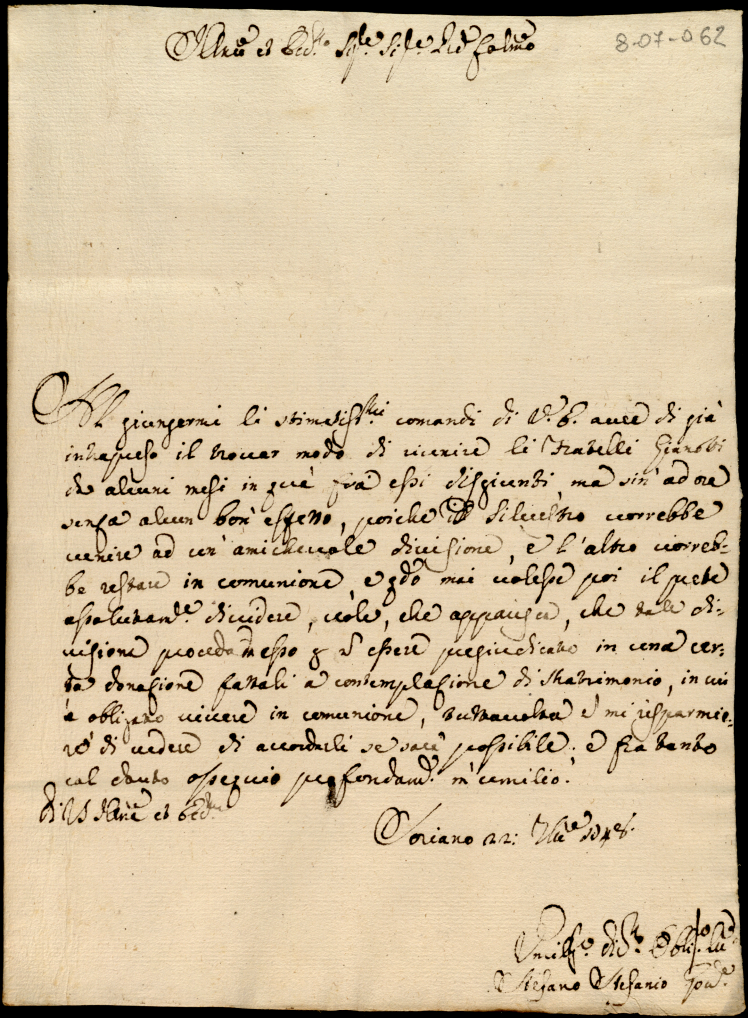 Illre et Ecc.te Sig.re Sig.re
8-07-062
Al giungermi li stimatiss.mi comandi di V.E. avea di già
intrapreso il trovar modo di riunire li Fratelli Gianotti
da alcuni mesi in quà frà essi disgiunti, ma sin'ad ora
senza alcun bon'effetto, poiche Silvestro vorrebbe
venire ad un'amichevole divisione, e l'altro vorreb=
be restare in comunione, e q.do mai volesse poi il prete
assolutam.te dividere, vole, che apparisca, che tale di=
visione proceda da esso p n essere pregiudicato in una cer=
ta donazione fattali à contemplazione di Matrimonio, in cui
è obligato vivere in comunione, tuttavolta
di vedere di accordarli se sarà possibile: e fra tanto
col dovuto ossequio profondam.te m'umilio.
Di V.S. Illre et Ecc.ma
Soriano 22:
Umiliss.o Obblig.mo
Stefano Stefanio Gov.re